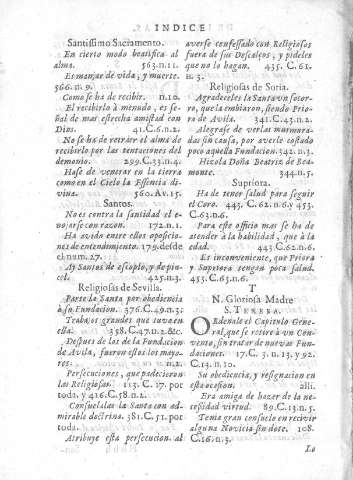 INDICE
Santissimo Sacramento.
En cierto modo beatifica al
alma. 563.n.11.
Es manjar de vida, y muerte.
566. n.9.
Como se ha de recibir. n.10.
El recibirlo à menudo, es se-
ñal de mas estrecha amistad con
Dios. 41.C.6.n.2.
No se ha de retraer el alma de
recibirlo por las tentaciones del
demonio. 299.C.33.n.4.
Hase de venerar en la tierra
como en el Cielo la Essencia di-
vina. 560. Av.15.
Santos.
No es contra la santidad el e-
nojarse con razon. 172.n.1.
Ha avido entre ellos oposicio-
nes de entendimiento. 179. desde
el num.27.
Ay Santos de escoplo, y de pin-
cel. 425.n.3.
Religiosas de Sevilla.
Parte la Santa por obediencia
à su Fundacion. 376.C.49.n.3.
Trabajos grandes que tuvo en
ella. 358.C.47.n.2.&c.
Despues de los de la Fundacion
de Avila, fueron estos los mayo-
res. n.2.
Persecuciones, que padecieron
las Religiosas. 113. C. 17. por
toda, y 416.C.58.n.2.
Consuelalas la Santa con ad-
mirable doctrina. 381.C.51. por
toda.
Atribuye esta persecucion al
averse confessado con Religiosos
fuera de sus Descalços, y pideles
que no lo hagan. 435. C.61.
n.3.
Religiosas de Soria.
Agradeceles la Santa un socor-
ro, que la embiaron, siendo Prio-
ra de Avila. 341.C.43.n.2.
Alegrase de verlas murmura-
das sin causa, por averle costado
poco aquella Fundacion. 342.n.3.
Hizola Doña Beatriz de Bea-
monte. 344.n.5.
Supriora.
Ha de tener salud para seguir
el Coro. 445. C.62.n.6.y 453.
C.63.n.6.
Para este officio mas se ha de
atender à la habilidad, que à la
edad. 443.C.62.n.6.
Es inconveniente, que Priora
y Supriora tengan poca salud.
453.C.63.n.6.
T
N. Gloriosa Madre
S. TERESA.
ORdenale el Capitulo Gene-
ral, que se retire à un Con-
vento, sin tratar de nuevas Fun-
daciones. 17.C. 3. n.13. y 92.
C.13. n.10.
Su obediencia, y resignacion en
esta ocasion. alli.
Era amiga de hazer de la ne-
cessidad virtud. 89.C.13.n.5.
Tenia gran consuelo en recivir
alguna Novicia sin dote. 108.
C.16.n.3.
Lo